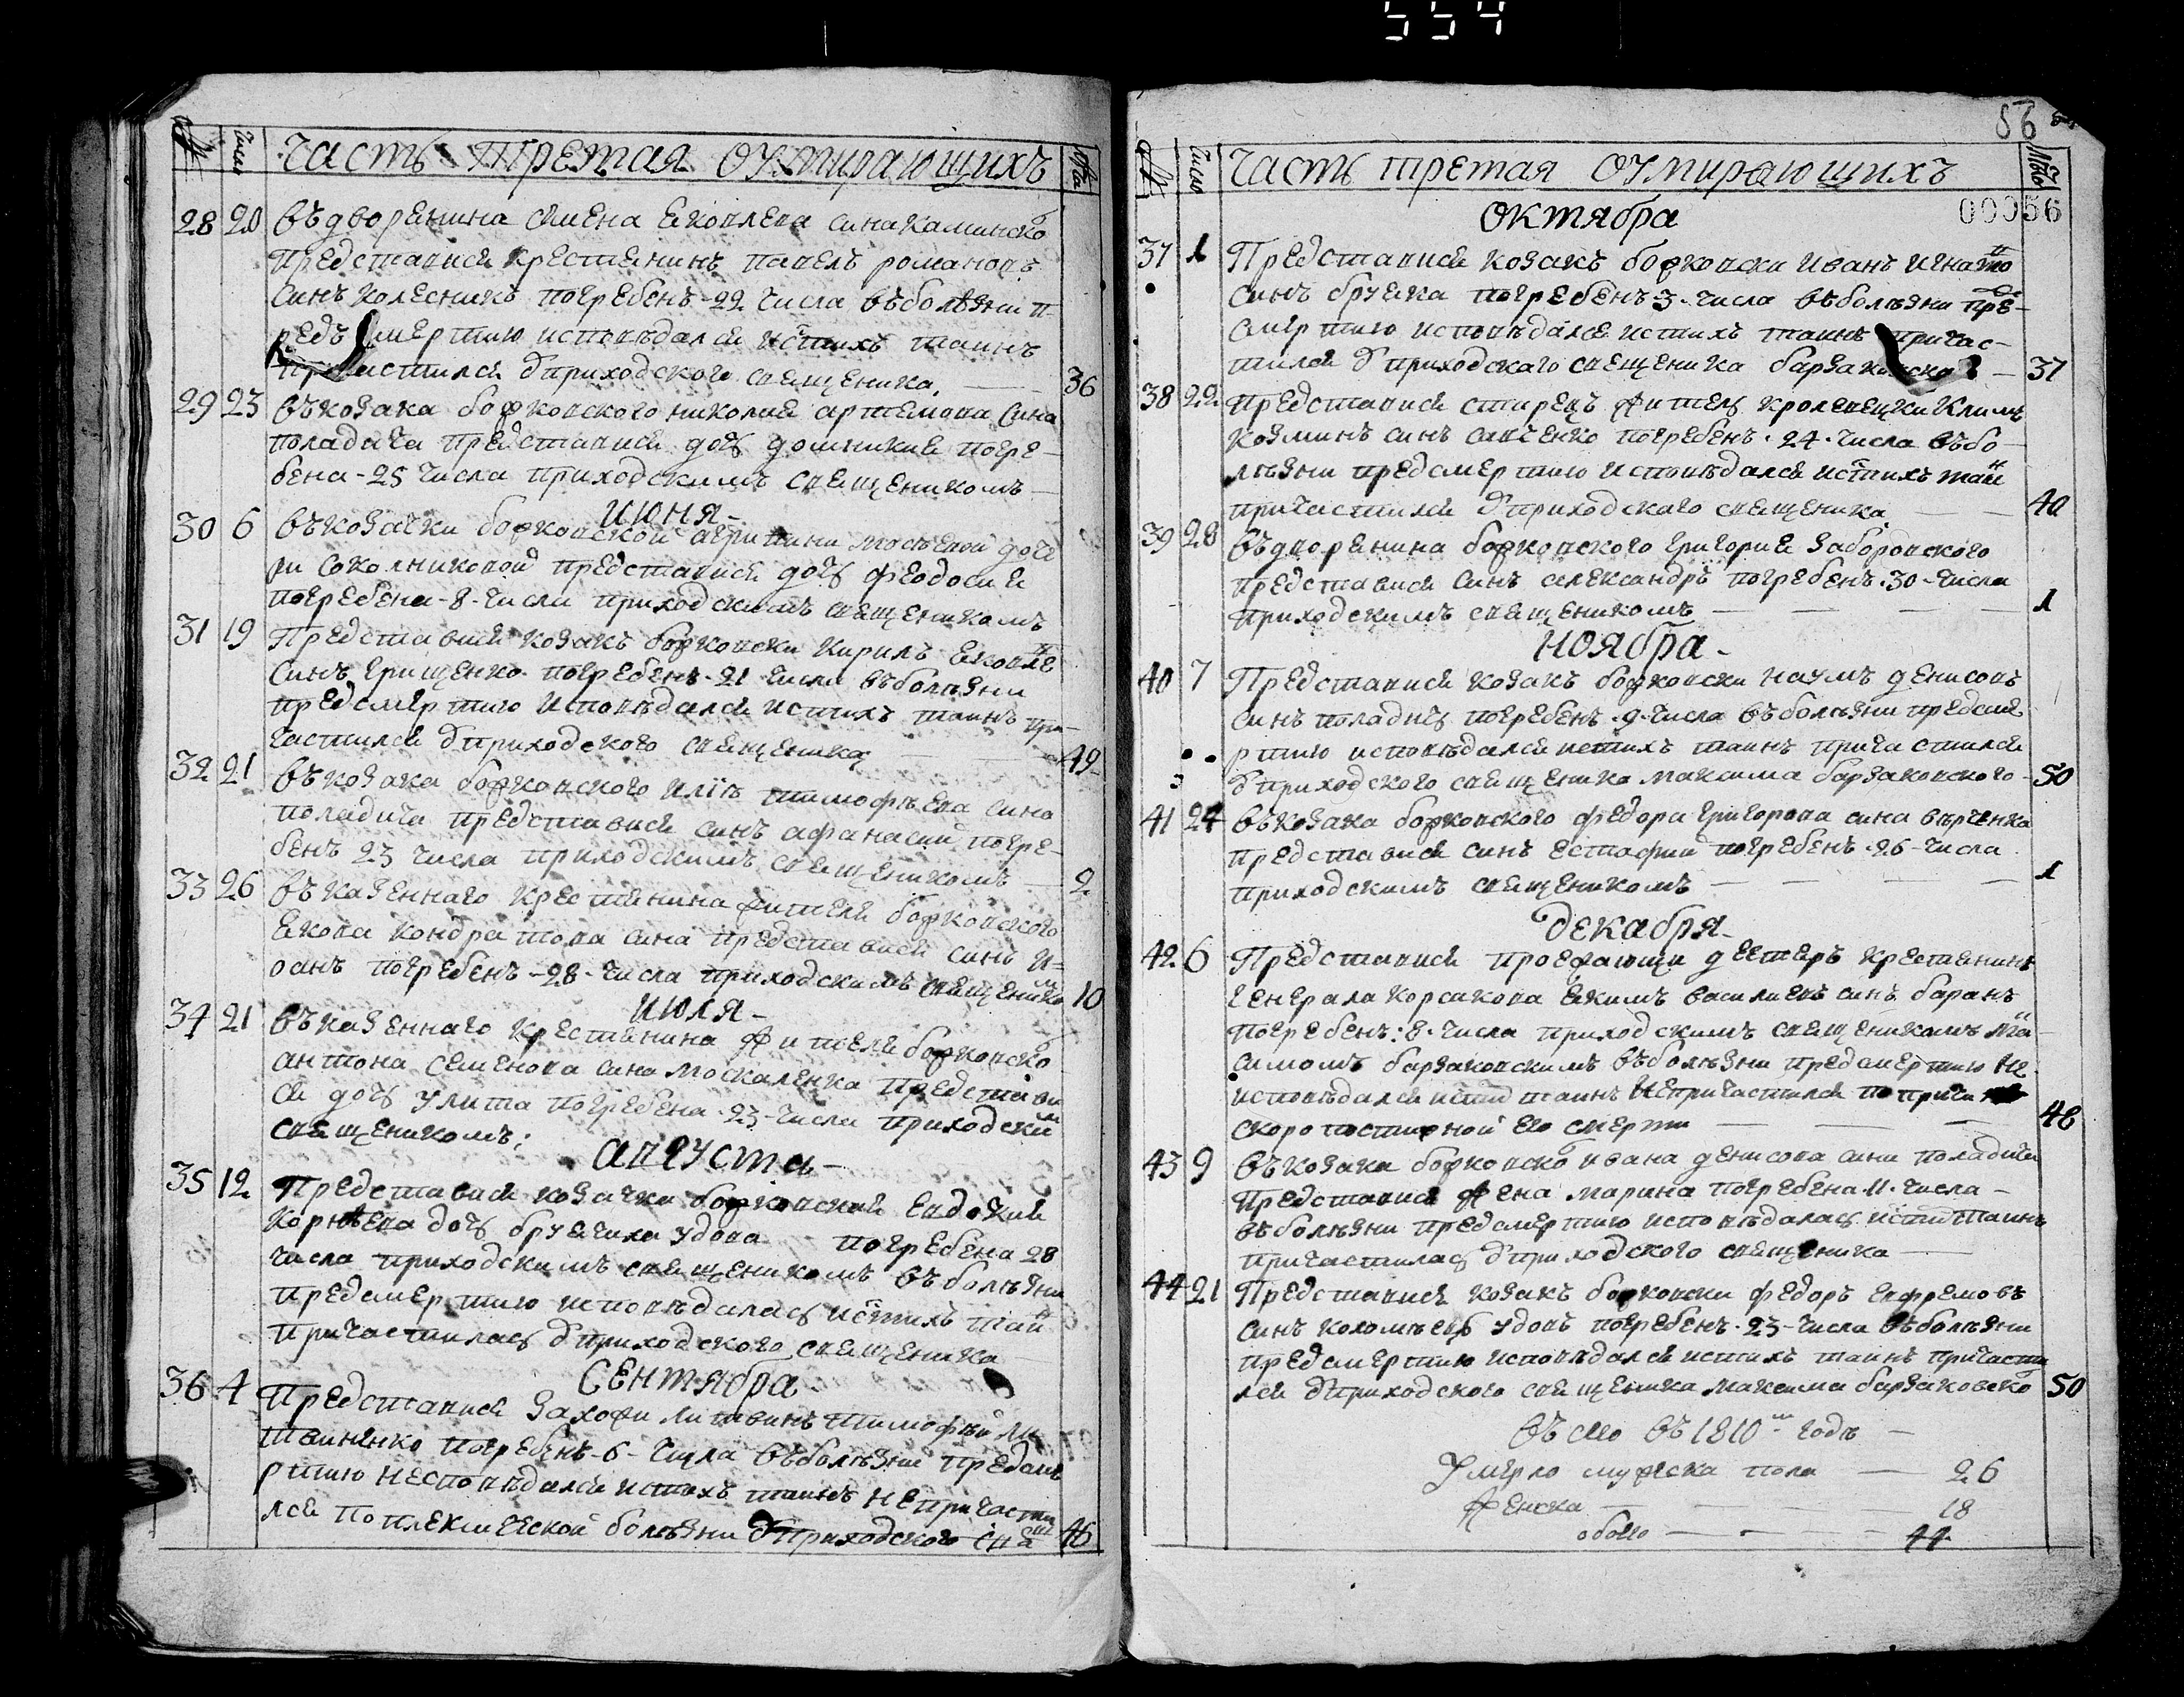 554
Часть третая оумирающихъ
28 20 въ дворенина Семена Екоплева сина каминско
Представися крестянинъ павелъ романовъ
Синъ колесникъ погребенъ-22 числа въ болѣзни п-
редъ смертию исповѣдался и стихъ таинъ
причастился ѿ приходского свещеника. 36
29 23 въ козака боржовского николая артемова сина
поладича представися дочь домникия погре-
бена-25 числа приходскимъ свещеникомъ
июня-
30 6 въ козачки боржовской агрипини мосѣевой доче
ри соколниковой представися дочь феодосия
погребена-8-числа приходскимъ свещеникомъ
31 19 Представися козакъ боржовски кирилъ яковле
Синъ грищенко погребенъ-21 числа въ болѣзни
предсмертию исповѣдался и стихъ таинъ при-
частился ѿ приходского свещеника 49
32 21 въ козака боржовского илїи тимофѣева сина
поладича представися синъ афанасий погре-
бенъ 23 числа приходскимъ свещеникомъ 2
33 26 въ казеннаго крестянина жителя боржовского
якова кондратова сина представися синъ и-
оанъ погребенъ-28-числа приходскимъ свещенико 10
июля-
34 21 въ казеннаго крестянина жителя боржовско
антона семенова сина москаленка представи
ся дочь улита погребена-23-числа приходски
свещеникомъ:
августа-
35 12 Представися козачка боржовская евдокия
корнѣева дочь бруячиха удова погребена 28
числа приходскимъ свещеникомъ въ болѣзни
предсмертию исповѣдалась и стихъ таи
причастилась ѿ приходского свещеника
Сентября
36 4 Представися захожи литвинъ тимофѣй ли
твиненко погребенъ-6-числа въ болѣзни предсме
ртию неисповѣдался и стихъ таинъ непричасти
лся по болѣзни ѿ приходского 46
86
Часть третая оумирающихъ
00056
октября
37 1 Представися козакъ боржовски иванъ игнато
Синъ бруяка погребенъ-3-числа въ болѣзни пре-
смертию исповѣдался и стихъ таинъ причас-
тился ѿ приходскаго свещеника барзаковско 37
38 22 Представися старецъ житель кролевецки климъ
козминъ синъ савченко погребенъ-24-числа въ бо-
лѣзни предсмертию исповѣдался и стихъ таи
причастился ѿ приходскаго свещеника 40
39 28 въ дворенина боржовского григория заборовского
представися синъ александръ погребенъ-30-числа
приходскимъ свещеникомъ 1
ноября-
40 7 Представися козакъ боржовски наумъ денисовъ
синъ поладичь погребенъ-9-числа въ болѣзни предсме
ртию исповѣдался и стихъ таинъ причастился
ѿ приходского свещеника максима барзаковского- 50
41 24 въ козака боржовского федора григорова сина вѣрченка
представися синъ естафий погребенъ-26-числа
приходскимъ свещеникомъ 1
декабря-
42 6 Представися проежающи крестянинъ
генерала корсакова екимъ василиевъ синъ баранъ
погребенъ:8-числа приходскимъ свещеникомъ ма
симомъ барзаковскимъ въ болѣзни предсмертию не
исповѣдался и стих таинъ непричастился по причи
скоропостижной его смерти 48
43 9 въ козака боржовско ивана денисова сина поладича
Представися жена марина погребена-11-числа-
въ болѣзни предсмертию исповѣдалась и стих таинъ
причастилась ѿ приходского свещеника
44 21 Представися козакъ боржовски федоръ евфремовъ
синъ коломѣець удовъ погребенъ-23-числа въ болѣзни
предсмертию исповѣдался и стихъ таинъ причасти
лся ѿ приходского свещеника максима барзаковско 50
Всѣхъ въ 1810 годѣ
Умерло мужеска пола 26
женска 18
обоего 44